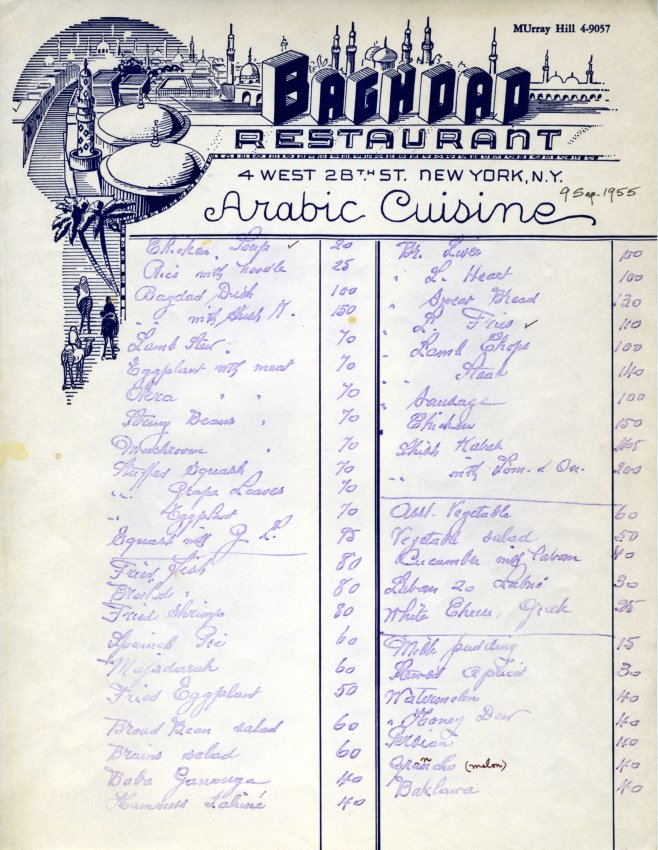 MUrray Hill 4-9057
BAGHDAD
RESTAURANT
4 WEST 28TH ST. NEW YORK, N.Y.
9 Sep. 1955
Arabic Cuisine
Chicken Soup ✓ 20
Rice with noodle 25
Bagdad Dish 100
" " with Shish K. 150
Lamb Stew 70
Eggplant with meat 70
Okra " " 70
String Beans " 70
Mushroom " 70
Stuffed Squash 70
" Grape Leaves 70
" Eggplant 70
Squash with G. L. 75
Fried Fish 80
Broild " 80
Fried Shrimp 80
Spanach Pie 60
Majadarah 60
Fried Eggplant 50
Broad Bean salad 60
Brains salad 60
Baba Ganouga 40
Hammos Tahiné 40
Br. Liver 100
" L. Heart 100
" Sweet Bread 120
" L. Fries ✓ 110
" Lamb Chops 100
" Steak 140
" Sausage 100
" Chicken 150
Shish Kabab 165
" " with Tom. & On. 200
Asst. Vegetable 60
Vegetable salad 50
Cucumber with Laban 40
Leban 20 Labné 30
White Cheese, Greek 25
Milk pudding 15
Stewed apricot 30
Watermelon 40
" Honey Dew 40
Persian 40
(melon) 40
Baklawa 40